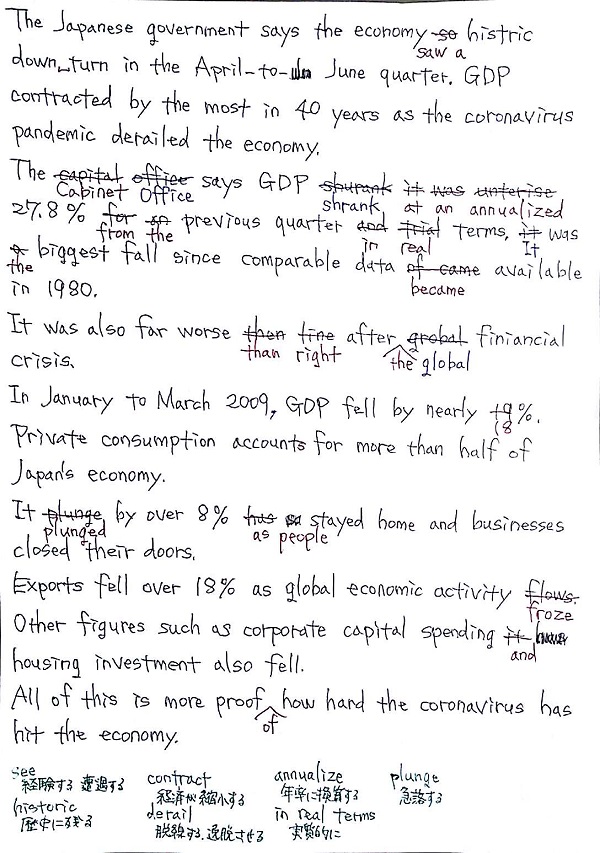 The Japanese government says the economy so histric
saw a
down turn in the April-to- June quarter. GDP
contracted by the most in 40 years as the coronavirus
pandemic derailed the economy.
The capital office says GDP shurank it was unterise
Cabinet Office shrank at an annualized
27.8% for an previous quarter and trial terms, it was
from the in real It
a biggest fall since comparable data of came available
the became
in 1980.
It was also far worse then time after grobal finiancial
than right the global
crisis.
In January to March 2009, GDP fell by nearly 19%.
18
Private consumption accounts for more than half of
Japan's economy.
It plunge by over 8% has so stayed home and businesses
plunged as people
closed their doors.
Exports fell over 18% as global economic activity flows.
froze
Other figures such as corporate capital spending it
and
housing investment also fell.
All of this is more proof how hard the coronavirus has
of
hit the economy.
see contract annualize plunge
経験する 遭遇する 経済が縮小する 年率に換算する 急落する
historic derail in real terms
歴史に残る 脱線する、逸脱させる 実質的に